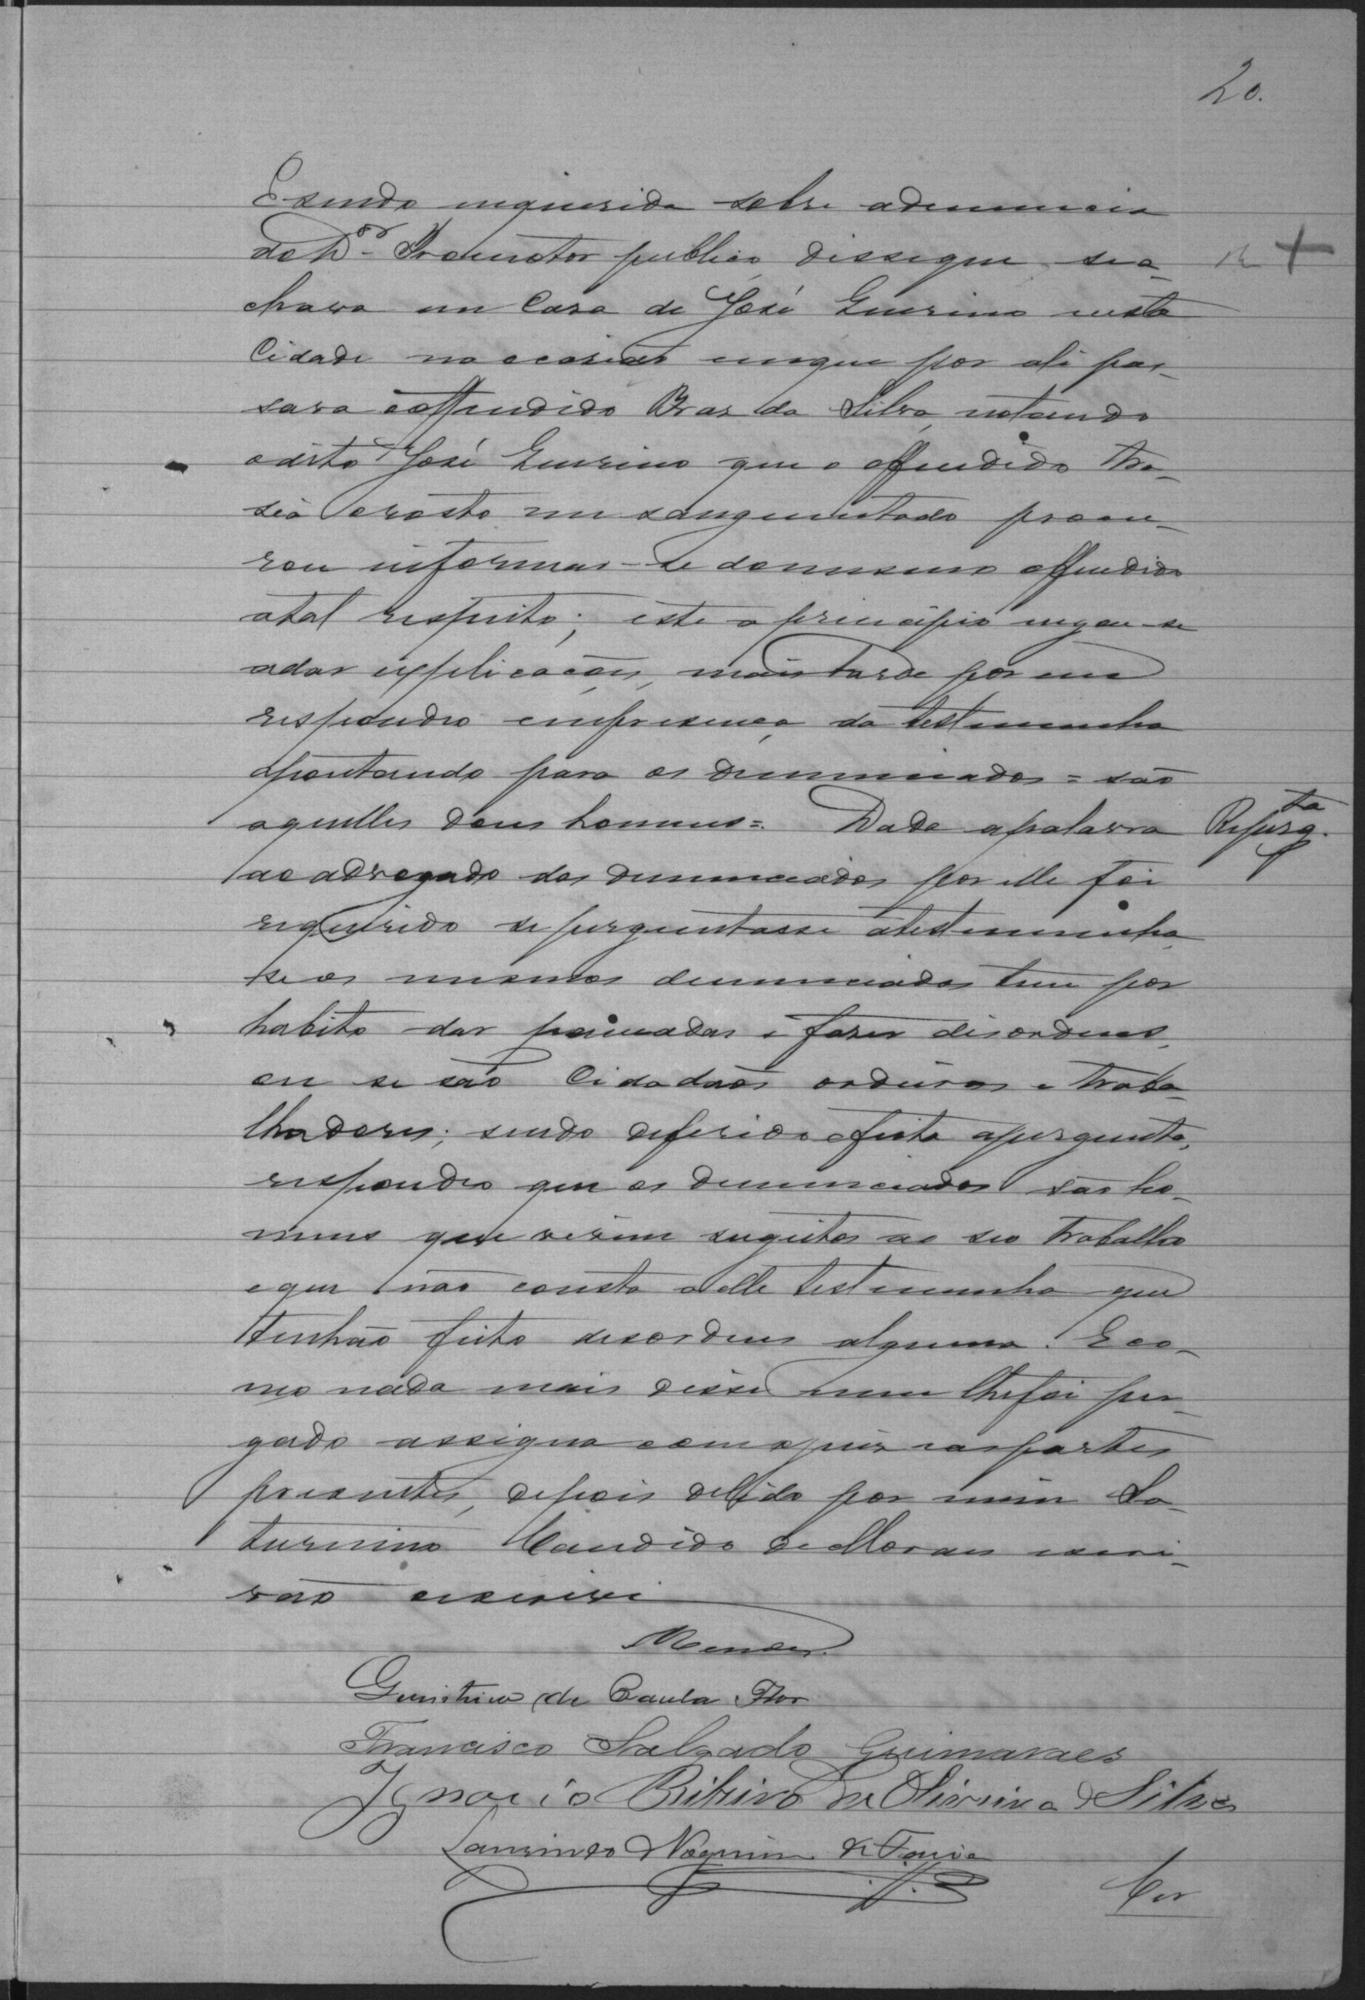 20.
E sendo inquirida sobre adenuncia
do Dor Promotor publico, disseque sea-
chava em Casa de José Guerino nesta
Cidade na ocasião emque por ali pas-
sava ooffendido Braz da Silva, notando
odito José Guerino que o offendido tra-
sia orosto ensanguentado procu-
rou informar-se domesmo offendido
atal respeito; este a principio negou-se
adar explicacões, maistarde porem
respondeo empresença da testemunha
apontando para os denunciados = são
aquelles dous homens =. Dada apalavra
Repergta
aoadvogado dos denunciados por elle foi
requerido seperguntasse atestemunha
seos mesmos denunciados tem por
habito dar pancadas e faser disordens,
ou se são Cidadãos ordeiros e traba-
lhadores; sendo deferido efeita apergunta,
respondeo que os denunciados são ho-
mens que vivem sugeitos ao seo trabalho
eque não consta aelle testemunha que
tenhão feito desordem alguma. Eco-
mo nada mais disse nem lhefoi per-
gado assigna comojuiz easpartes
presentes, depois delido por mim Sa-
turnino Candido de Moraes escri-
vão escrevi
Mendes
de Paula Flor
Francisco Salgado Guimaraes
Ignacio Ribeiro de Oliveira e Silva
Laurindo Nogueira de